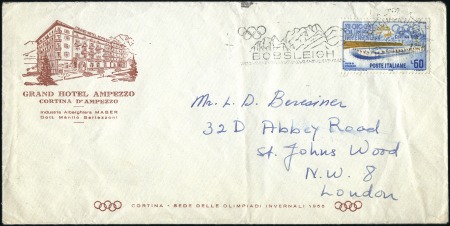 BOBSLEIGH
POSTE ITALIANE
L.60
GRAND HOTEL AMPEZZO
CORTINA D'AMPEZZO
Industria Alberghiera MABER
Dott. Manlio Bertazzoni
Mr. L. D. Beresiner
32D Abbey Road
St. Johns Wood
N.W. 8
London
CORTINA - SEDE DELLE OLIMPIADI INVERNALI 1956